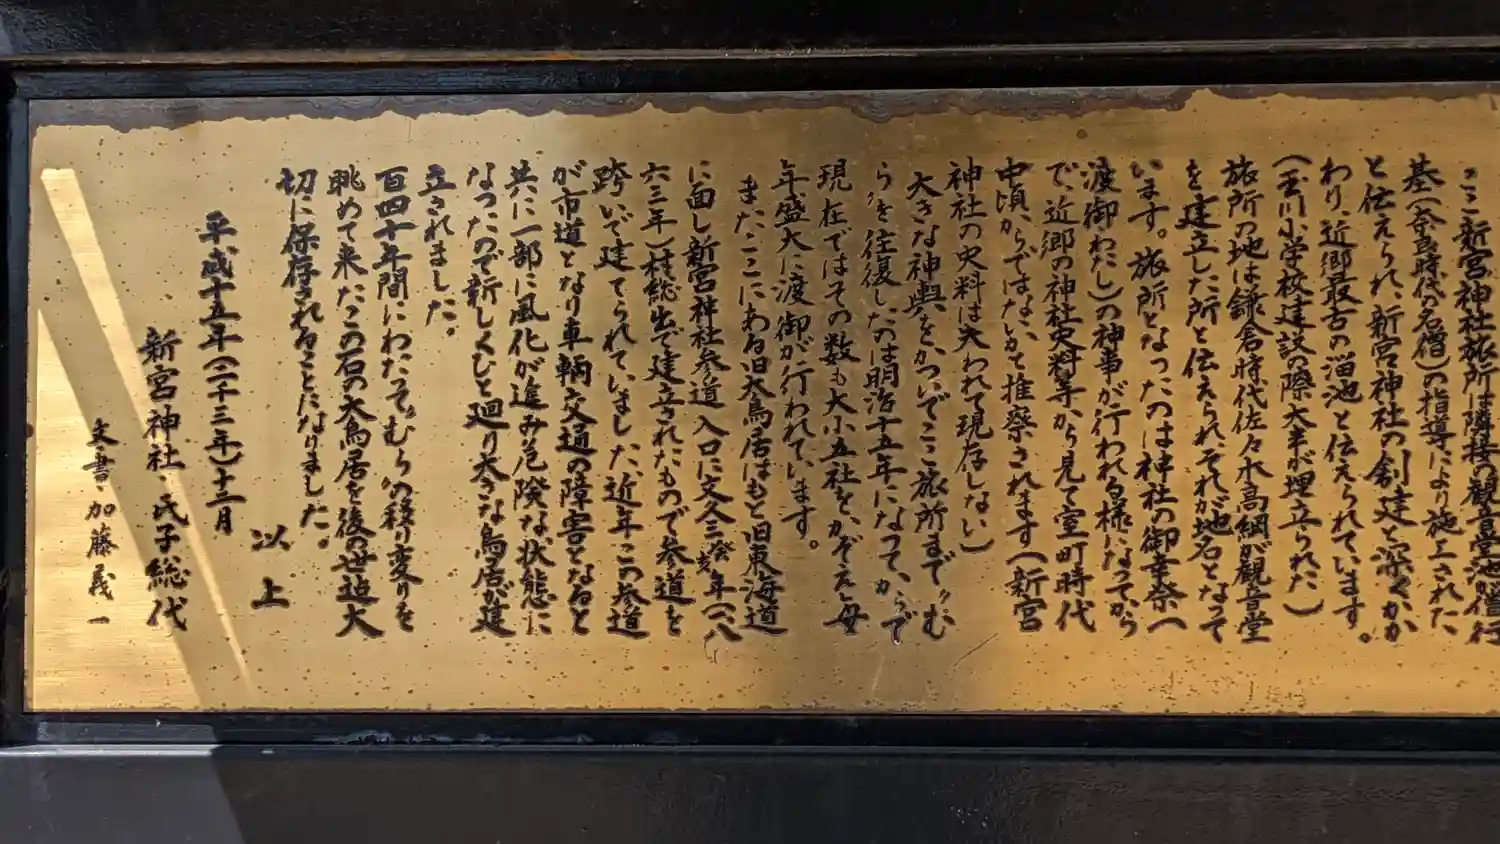 ここ新宮神社旅所は隣接の観音堂池が僧行
基(奈良時代の名僧)の指導により施工された
と伝えられ、新宮神社の創建と深くかか
わり、近郷最古の溜池と伝えられています。
(玉川小学校建設の際大半が埋立られた)
旅所の地は鎌倉時代佐々木高綱が観音堂
を建立した所と伝えられ、それが地名となって
います。旅所となったのは神社の御幸祭(
渡御わたし)の神事が行われる様になってから
で、近郷の神社史料等から見て室町時代
中頃からではないかと推察されます(新宮
神社の史料は失われて現存しない)
大きな神輿をかついでここ旅所まで〃む
ら〃を往復したのは明治十五年になってからで
現在ではその数も大小五社をかぞえ毎
年盛大に渡御が行われています。
また、ここにある旧大鳥居はもと旧東海道
に面し新宮神社参道入口に文久三癸亥年(一八
六三年)村総出で建立されたもので参道を
跨いで建てられていました、近年この参道
が市道となり車輌交通の障害となると
共に一部に風化が進み危険な状態に
なったので新しくひと廻り大きな鳥居が建
立されました。
百四十年間にわたって〃むら〃の移り変りを
眺めて来たこの石の大鳥居を後の世迄大
切に保存されることになりました。
以上
平成十五年(二千三年)十二月
新宮神社、氏子総代
文書、加藤義一